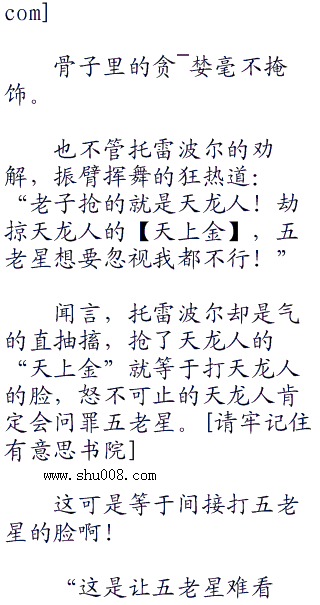 com]
骨子里的贪¯婪毫不掩
饰。
也不管托雷波尔的劝
解，振臂挥舞的狂热道：
“老子抢的就是天龙人！劫
掠天龙人的【天上金】，五
老星想要忽视我都不行！”
闻言，托雷波尔却是气
的直抽搐，抢了天龙人的
“天上金”就等于打天龙人
的脸，怒不可止的天龙人肯
定会问罪五老星。[请牢记住
有意思书院]
www.shu008.com
这可是等于间接打五老
星的脸啊！
“这是让五老星难看